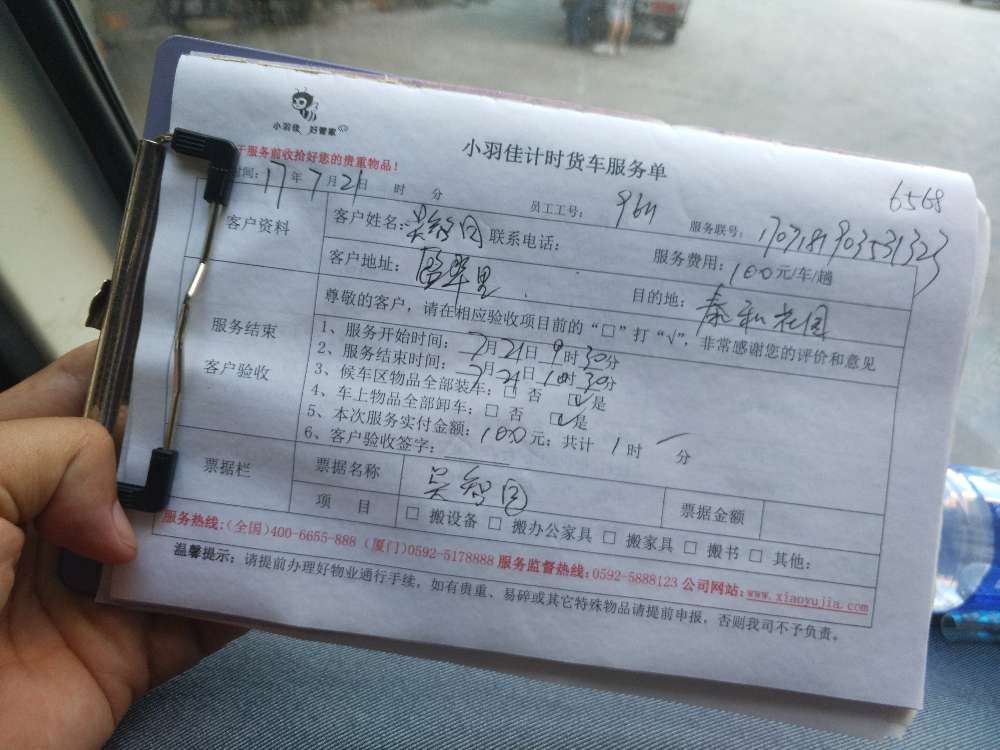 小羽佳 好管家
小羽佳计时货车服务单
6568
于服务前收拾好您的贵重物品！
时间：17年7月21日 时 分
员工工号：
服务联号：
客户资料
客户姓名：吴智国 联系电话：
服务费用：100元/车/趟
客户地址：
目的地：泰和花园
服务结束
客户验收
尊敬的客户，请在相应验收项目前的“□”打“√”，非常感谢您的评价和意见
1、服务开始时间：7月21日9时30分
2、服务结束时间：7月21日10时30分
3、候车区物品全部装车：□ 否 ☑是
4、车上物品全部卸车：□ 否 ☑是
5、本次服务实付金额：100元；共计 1时 分
6、客户验收签字：
票据栏
票据名称
吴智国
票据金额
项 目
□ 搬设备 □ 搬办公家具 □ 搬家具 □ 搬书 □ 其他：
服务热线：(全国)400-6655-888 (厦门)0592-5178888 服务监督热线：0592-5888123 公司网站：www.xiaoyujia.com
温馨提示：请提前办理好物业通行手续，如有贵重、易碎或其它特殊物品请提前申报，否则我司不予负责。